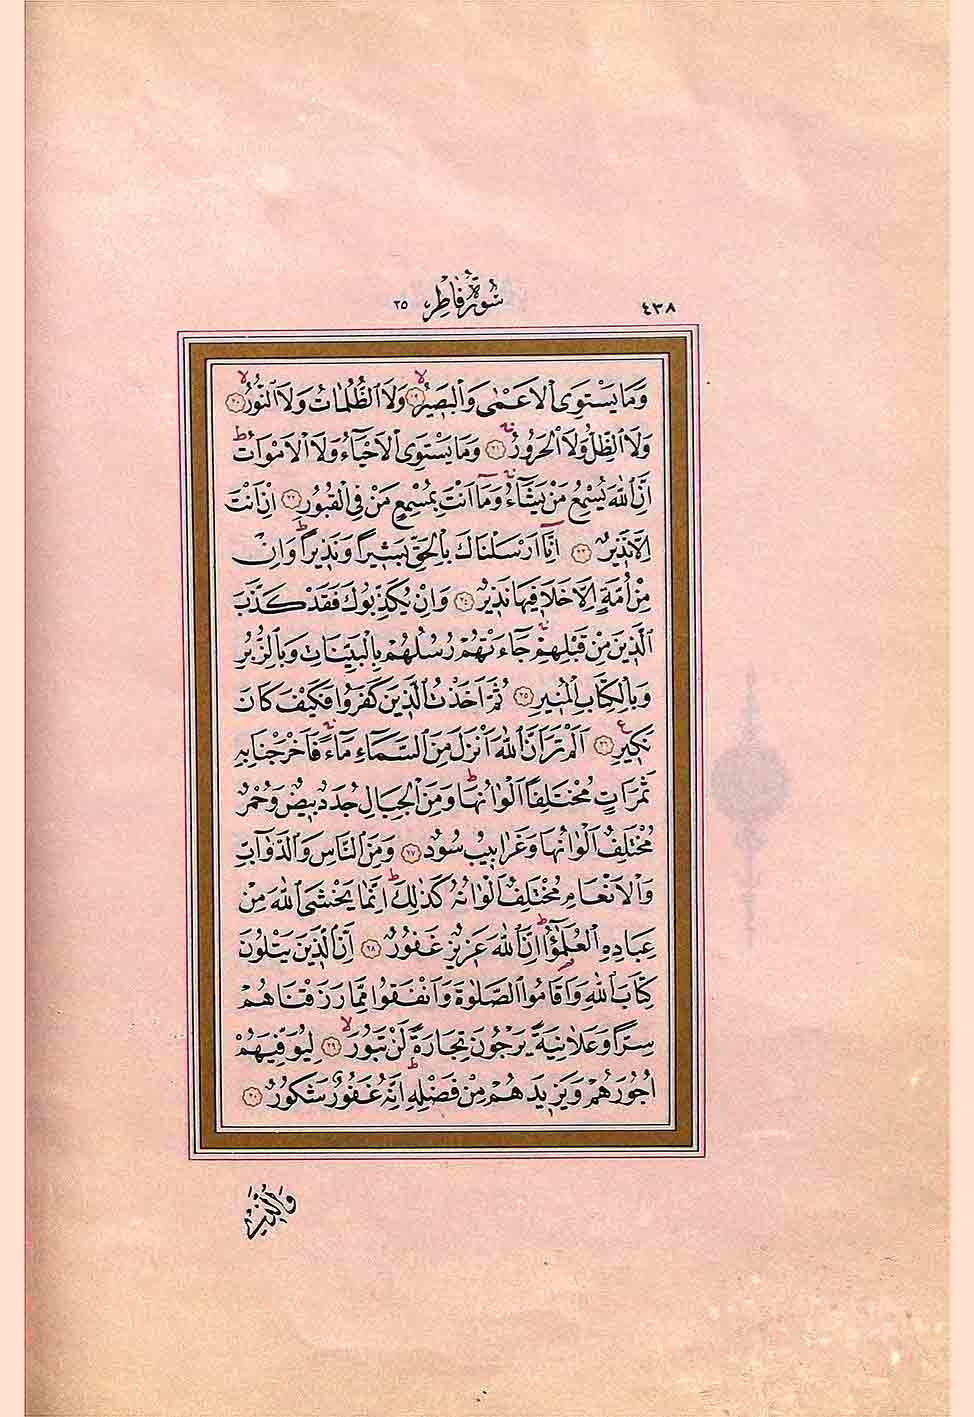 ٤٣٨ سُورَةُ فَاطِرٍ ٣٥
وَمَا يَسْتَوِى الْاَعْمٰى وَالْبَصٖيرُۙ ﴿١٩﴾ وَلَا الظُّلُمَاتُ وَلَا النُّورُۙ ﴿٢٠﴾
وَلَا الظِّلُّ وَلَا الْحَرُورُۚ ﴿٢١﴾ وَمَا يَسْتَوِى الْاَحْيَٓاءُ وَلَا الْاَمْوَاتُؕ
اِنَّ اللّٰهَ يُسْمِعُ مَنْ يَشَٓاءُۚ وَمَٓا اَنْتَ بِمُسْمِعٍ مَنْ فِى الْقُبُورِ ﴿٢٢﴾ اِنْ اَنْتَ
اِلَّا نَذٖيرٌ ﴿٢٣﴾ اِنَّٓا اَرْسَلْنَاكَ بِالْحَقِّ بَشٖيرًا وَنَذٖيرًاؕ وَاِنْ
مِنْ اُمَّةٍ اِلَّا خَلَا فٖيهَا نَذٖيرٌ ﴿٢٤﴾ وَاِنْ يُكَذِّبُوكَ فَقَدْ كَذَّبَ
الَّذٖينَ مِنْ قَبْلِهِمْۚ جَٓاءَتْهُمْ رُسُلُهُمْ بِالْبَيِّنَاتِ وَبِالزُّبُرِ
وَبِالْكِتَابِ الْمُنٖيرِ ﴿٢٥﴾ ثُمَّ اَخَذْتُ الَّذٖينَ كَفَرُوا فَكَيْفَ كَانَ
نَكٖيرِ ﴿٢٦﴾ ع اَلَمْ تَرَ اَنَّ اللّٰهَ اَنْزَلَ مِنَ السَّمَٓاءِ مَٓاءًۚ فَاَخْرَجْنَا بِهٖ
ثَمَرَاتٍ مُخْتَلِفًا اَلْوَانُهَاؕ وَمِنَ الْجِبَالِ جُدَدٌ بٖيضٌ وَحُمْرٌ
مُخْتَلِفٌ اَلْوَانُهَا وَغَرَابٖيبُ سُودٌ ﴿٢٧﴾ وَمِنَ النَّاسِ وَالدَّوَٓابِّ
وَالْاَنْعَامِ مُخْتَلِفٌ اَلْوَانُهُ كَذٰلِكَؕ اِنَّمَا يَخْشَى اللّٰهَ مِنْ
عِبَادِهِ الْعُلَمٰٓؤُاؕ اِنَّ اللّٰهَ عَزٖيزٌ غَفُورٌ ﴿٢٨﴾ اِنَّ الَّذٖينَ يَتْلُونَ
كِتَابَ اللّٰهِ وَاَقَامُوا الصَّلٰوةَ وَاَنْفَقُوا مِمَّا رَزَقْنَاهُمْ
سِرًّا وَعَلَانِيَةً يَرْجُونَ تِجَارَةً لَنْ تَبُورَۙ ﴿٢٩﴾ لِيُوَفِّيَهُمْ
اُجُورَهُمْ وَيَزٖيدَهُمْ مِنْ فَضْلِهٖؕ اِنَّهُ غَفُورٌ شَكُورٌ ﴿٣٠﴾